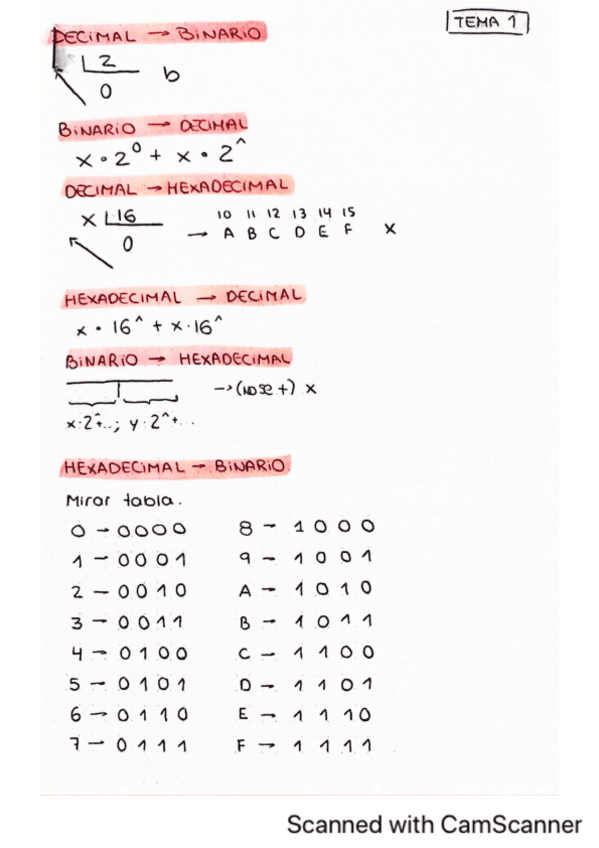 TEMA 1
DECIMAL → BINARIO
2
0 b
BINARIO → DECIMAL
x · 2^0 + x · 2^
DECIMAL → HEXADECIMAL
x 16
10 11 12 13 14 15
0 → A B C D E F x
HEXADECIMAL → DECIMAL
x · 16^ + x · 16^
BINARIO → HEXADECIMAL
→ (NO SE +) x
x·2^+..; y·2^+...
HEXADECIMAL → BINARIO
Mirar tabla.
0 → 0000 8 → 1000
1 → 0001 9 → 1001
2 → 0010 A → 1010
3 → 0011 B → 1011
4 → 0100 C → 1100
5 → 0101 D → 1101
6 → 0110 E → 1110
7 → 0111 F → 1111
Scanned with CamScanner